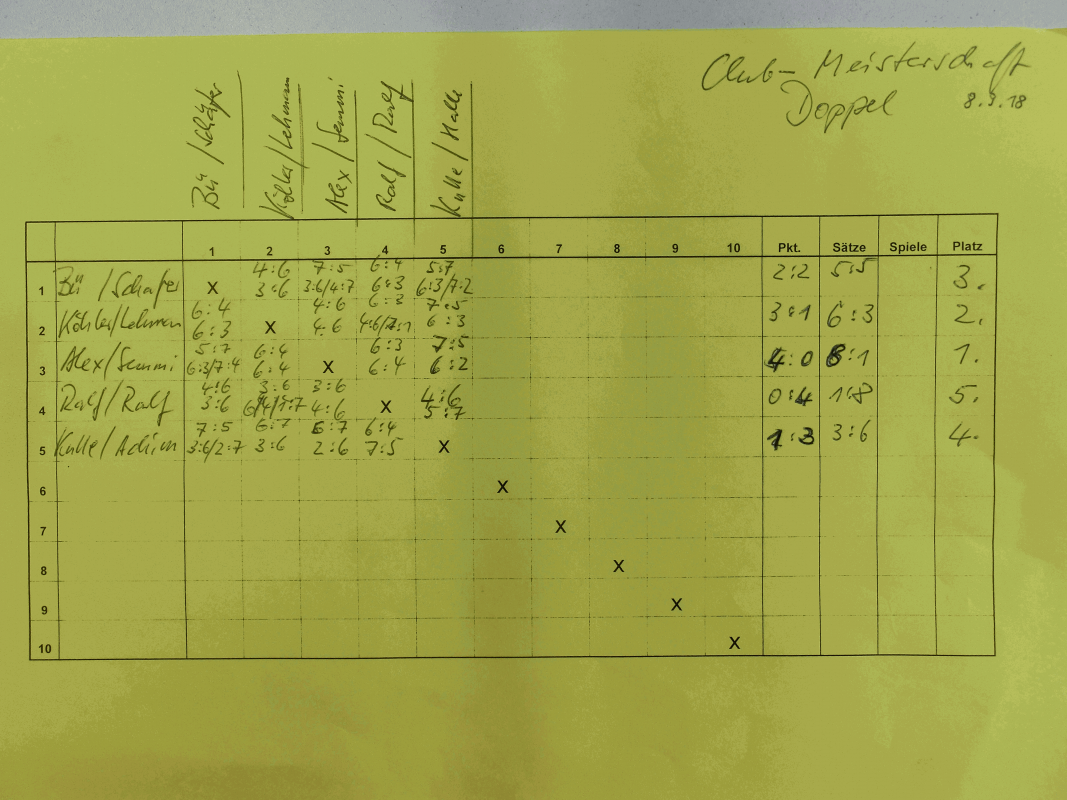 Club-Meisterschaft
Doppel 8.9.18
Bü / Schäfer
Köhler/Lehmann
Alex / Semmi
Ralf / Ralf
Kulle / Kalle
1 2 3 4 5 6 7 8 9 10 Pkt. Sätze Spiele Platz
1 Bü / Schäfer X 4:6 3:6 7:5 3:6/4:7 6:4 6:3 5:7 6:3/7:2 2:2 5:5 3.
2 Köhler/Lehman 6:4 6:3 X 4:6 4:6 6:3 4:6/7:1 7:5 6:3 3:1 6:3 2.
3 Alex/Semmi 5:7 6:3/7:4 6:4 6:4 X 6:3 6:4 7:5 6:2 4:0 8:1 1.
4 Ralf/Ralf 4:6 3:6 3:6 6/4/1:7 3:6 4:6 X 4:6 5:7 0:4 1:8 5.
5 Kulle/Adrian 7:5 3:6/2:7 3:6 2:6 6:4 7:5 X 1:3 3:6 4.
6 X
7 X
8 X
9 X
10 X